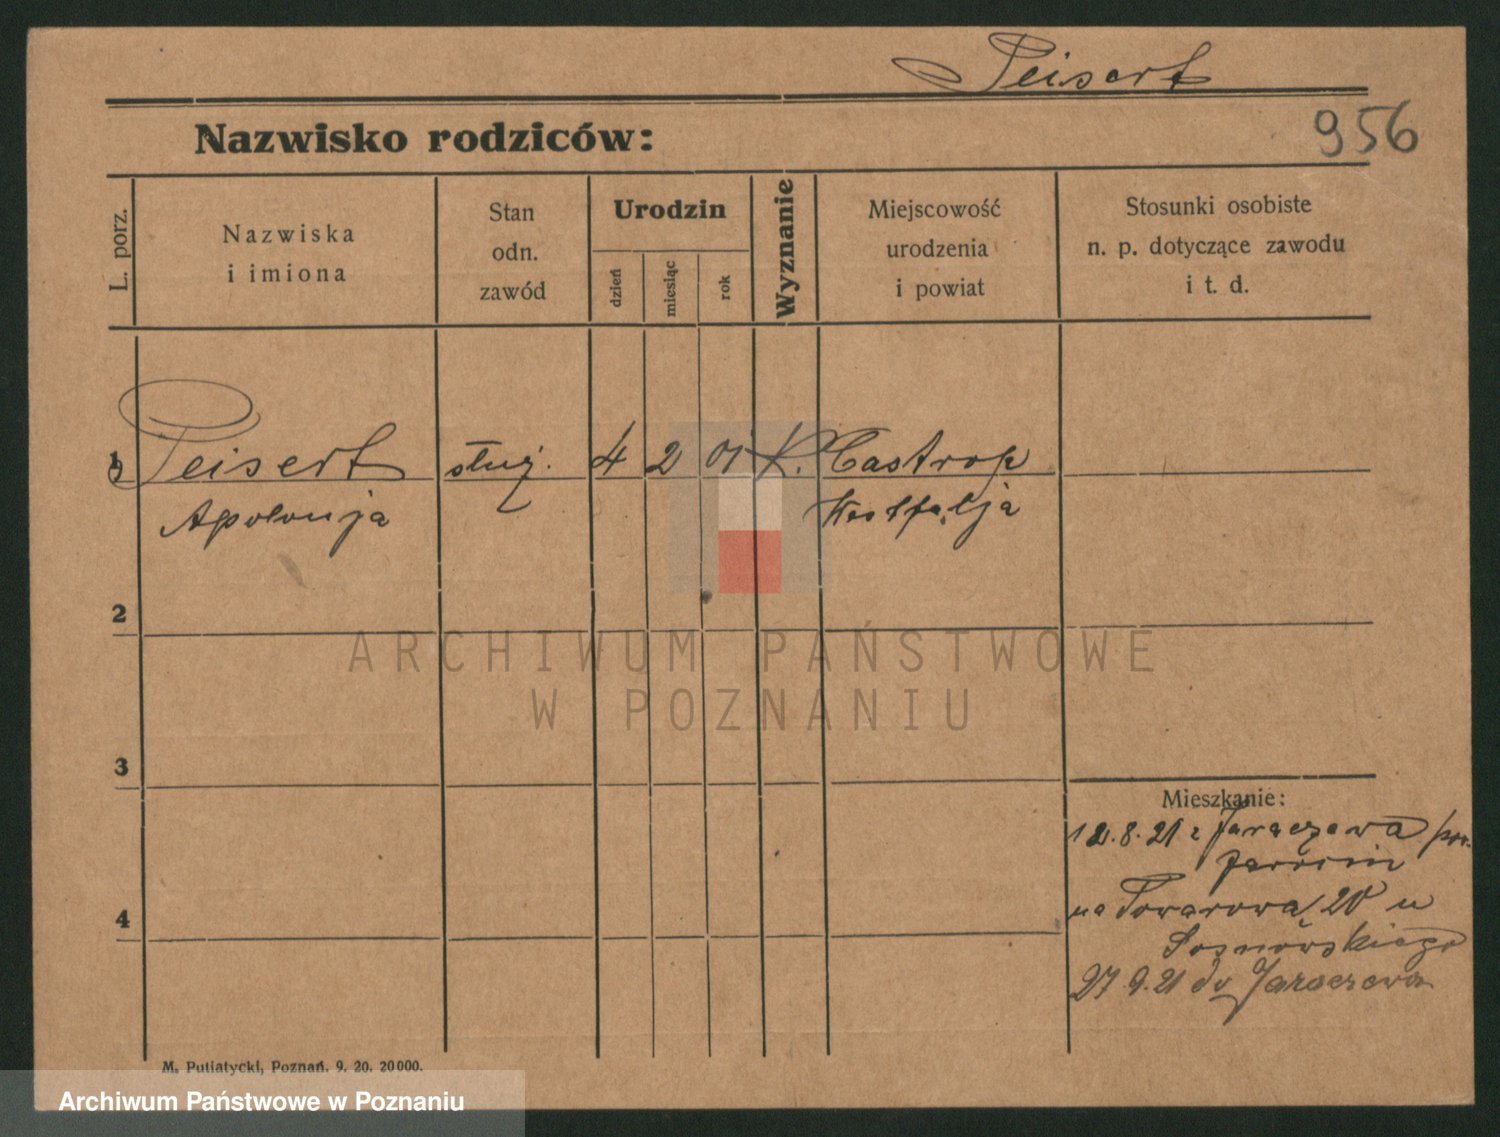 Peisert
956
Nazwisko rodziców:
L. porz.
Nazwiska
i imiona
Stan
odn.
zawód
Urodzin
dzień
miesiąc
rok
Wyznanie
Miejscowość
urodzenia
i powiat
Stosunki osobiste
n. p. dotyczące zawodu
i t. d.
1 Peisert służ. 4 2 01 K. Castrop
Apolonja Westfalja
2
ARCHIWUM PAŃSTWOWE
W POZNANIU
3
Mieszkanie:
12.8.21 z Jaraczewa pow.
Jarocin
na Towarową 20 u
Sosnowskiego
27.9.21 do Jaraczewa
4
M. Putiatycki, Poznań. 9. 20. 20000.
Archiwum Państwowe w Poznaniu